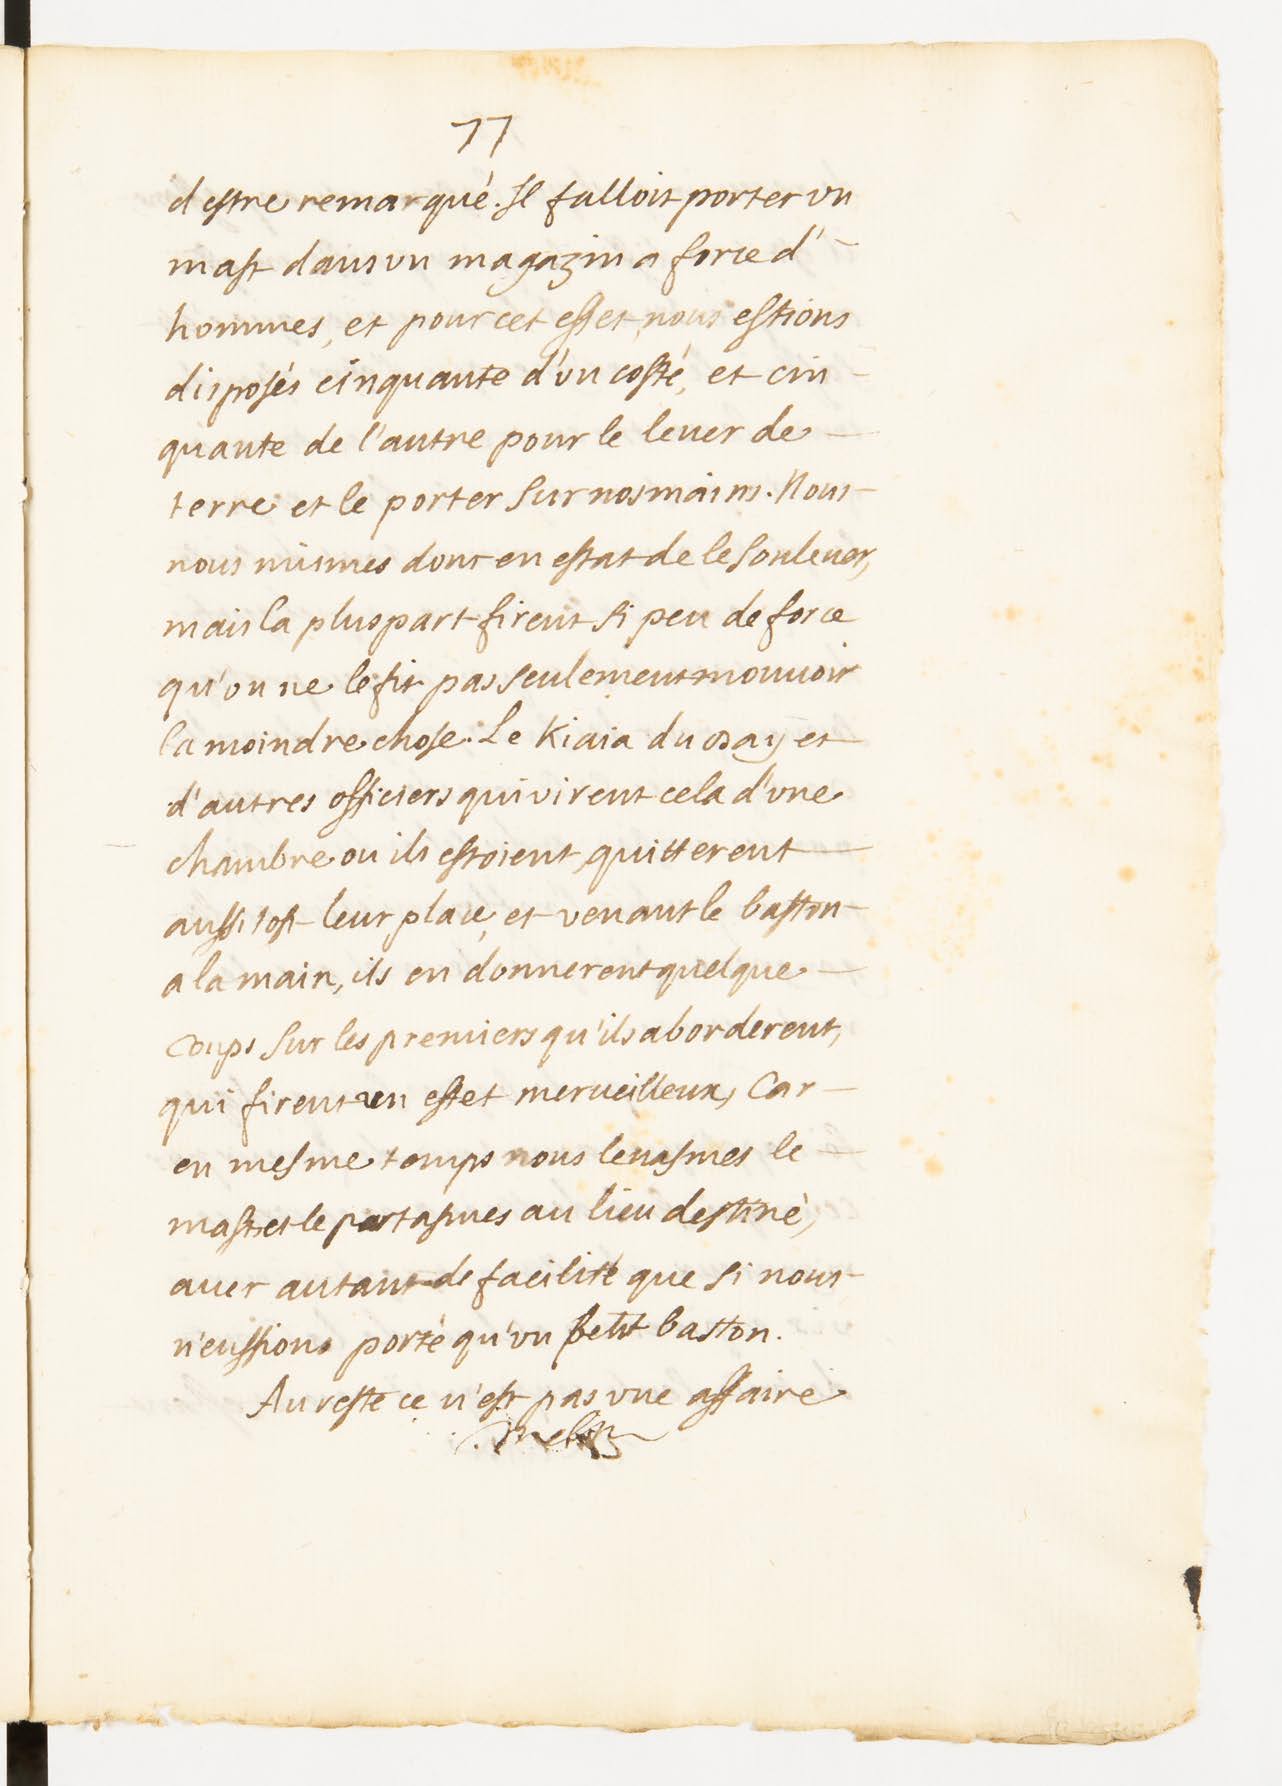 77
d'estre remarqué. Il falloit porter vn
mast dans vn magazin a force d'
hommes, et pour cet effet nous estions
disposés cinquante d'vn costé, et cin
quante de l'autre pour le leuer de
terre et le porter sur nos mains. Nous
nous mismes donc en estat de le souleuer,
mais la pluspart firent si peu de force
qu'on ne le fit pas seulement mouuoir
la moindre chose. Le Kiaia du Bay et
d'autres officiers qui virent cela d'vne
chambre ou ils estoient, quitterent
aussi tost leur place, et venant le baston
a la main, ils en donnerent quelque
coups sur les premiers qu'ils aborderent,
qui firent un effet merueilleux, Car
en mesme temps nous leuasmes le
mast et le portasmes au lieu destiné,
auec autant de facilité que si nous
n'eussions porté qu'vn petit baston.
Au reste ce n'est pas vne affaire